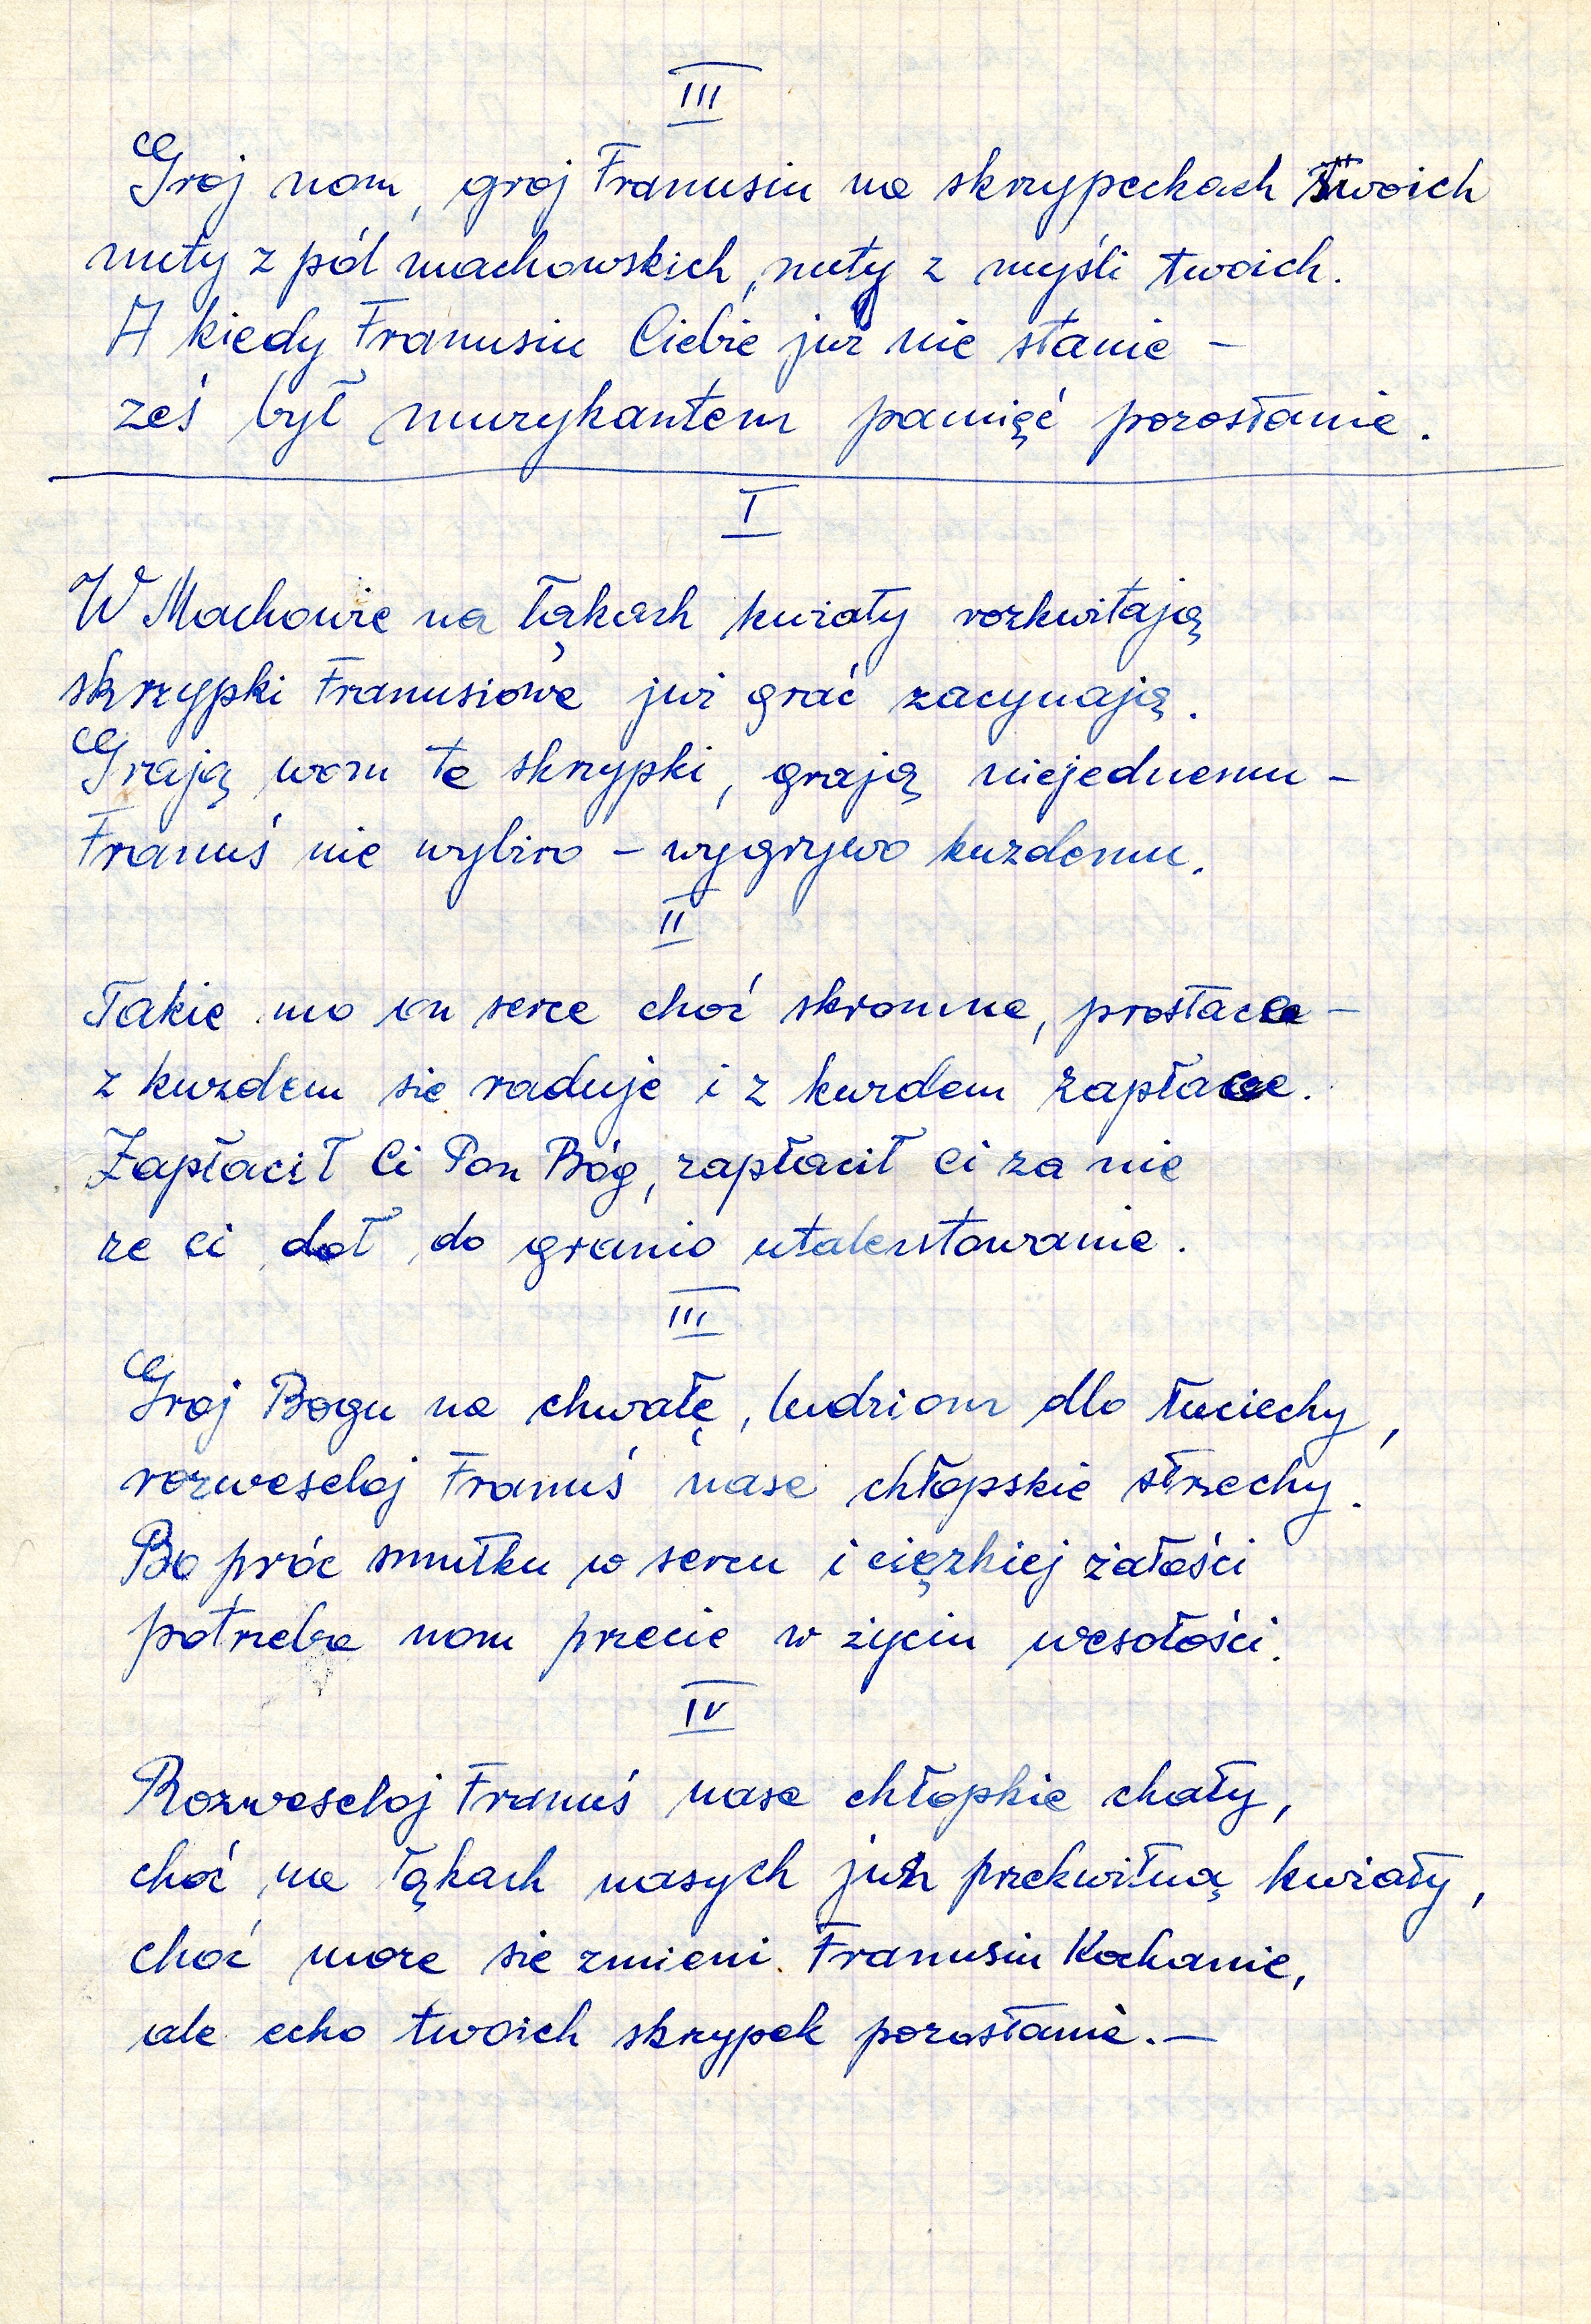 III
Groj nom, groj Franusiu na skrzypeckach twoich
nuty z pól machowskich, nuty z myśli twoich.
A kiedy Franusiu Ciebie już nie stanie –
ześ był muzykantem pamięć pozostanie.
I
W Machowie na łąkach kwiaty rozkwitają
skrzypki Franusiowe już grać zacynają.
Grają wom te skrzypki, grają niejednemu –
Franuś nie wybiro – wygrywo kuzdemu.
II
Takie mo on serce choć skromne, prostace –
z kuzdem sie raduje i z kuzdem zapłace.
Zapłacił Ci Pon Bóg, zapłacił ci za nie
ze ci doł do granio utalentowanie.
III
Groj Bogu na chwałę, ludziom dlo łuciechy,
rozweseloj Franuś nase chłopskie strzechy.
Bo próc smutku w sercu i cięzkiej żałości
potrzeba nom przecie w życiu wesołości.
IV
Rozweseloj Franuś nase chłopkie chaty,
choć na łąkach nasych juz przekwitną kwiaty,
choć moze sie zmieni Franusiu Kochanie,
ale echo twoich skrzypek pozostanie.–